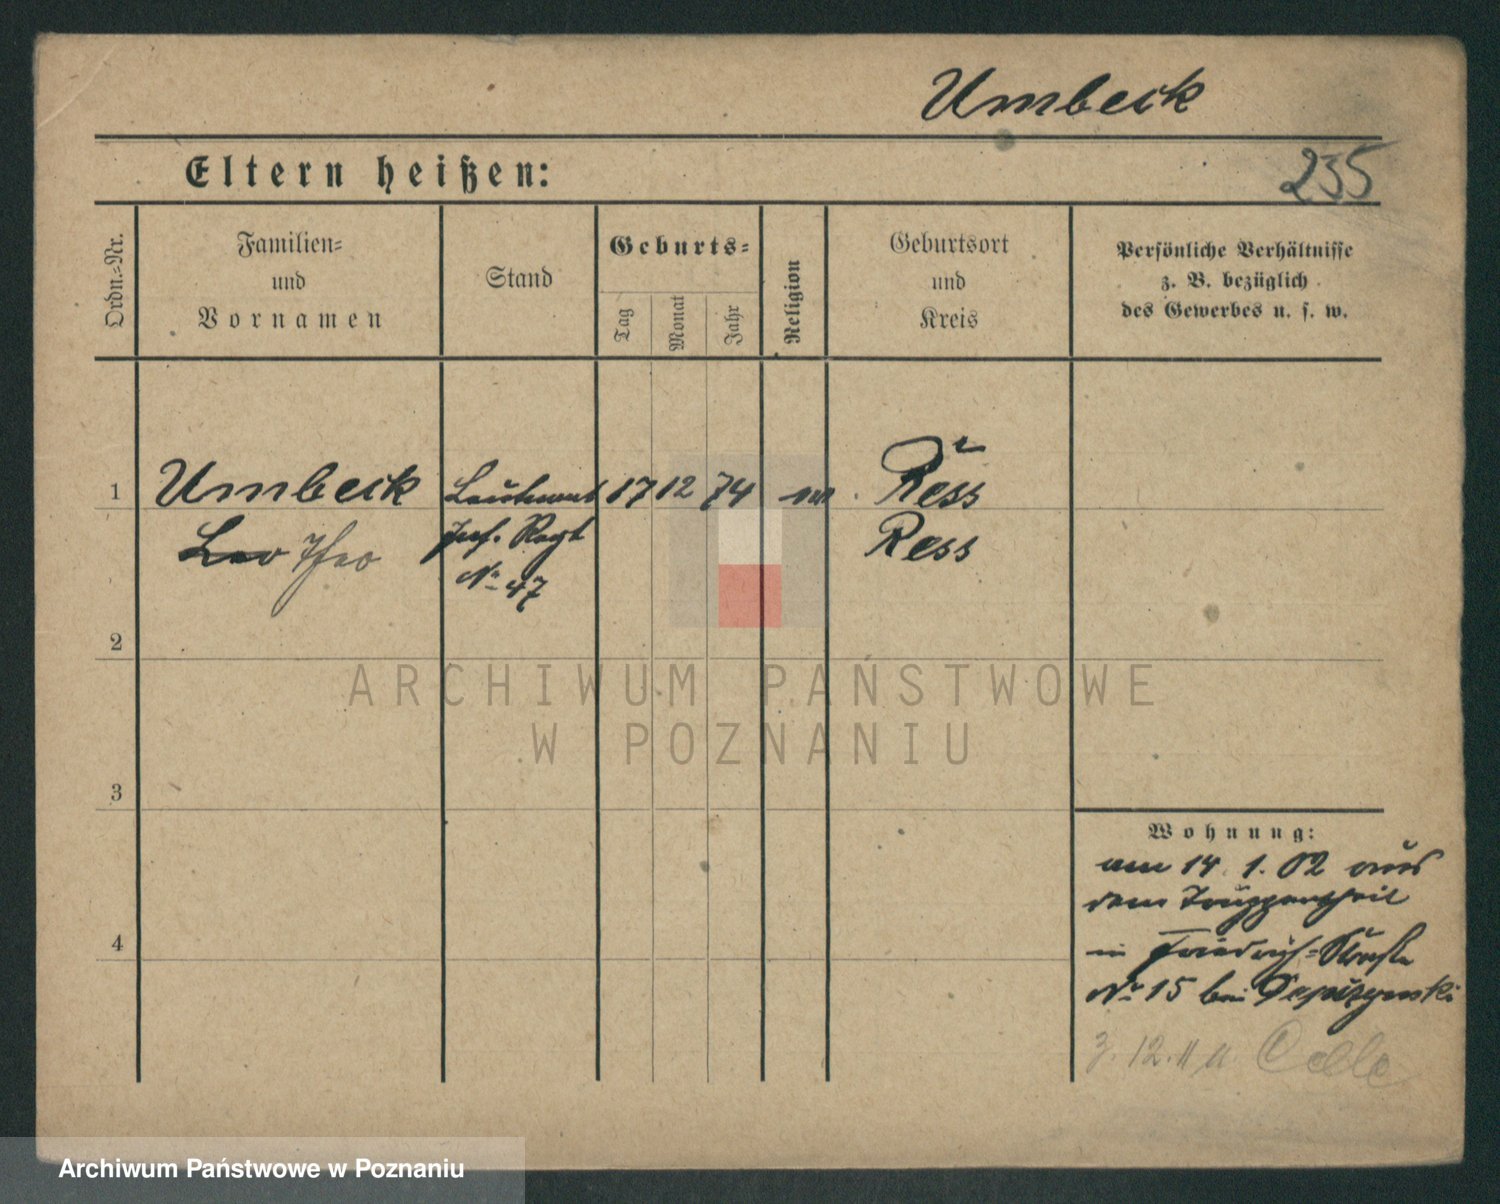 Umbeck
Eltern heißen:
235
Ordn.-Nr.
Familien-
und
Vornamen
Stand
Geburts-
Tag
Monat
Jahr
Religion
Geburtsort
und
Kreis
Persönliche Verhältnisse
z. B. bezüglich
des Gewerbes u. s. w.
1
Umbeck
Leutnant
17
12
74
Rees
Leo Theo
Inf. Regt
Ress
No 47
2
ARCHIWUM PAŃSTWOWE
W POZNANIU
3
Wohnung:
am 14. 1. 02 aus
dem Truppentheil
4
in Friedrich-Straße
No 15 bei
3. 12. 11 n. Celle
Archiwum Państwowe w Poznaniu